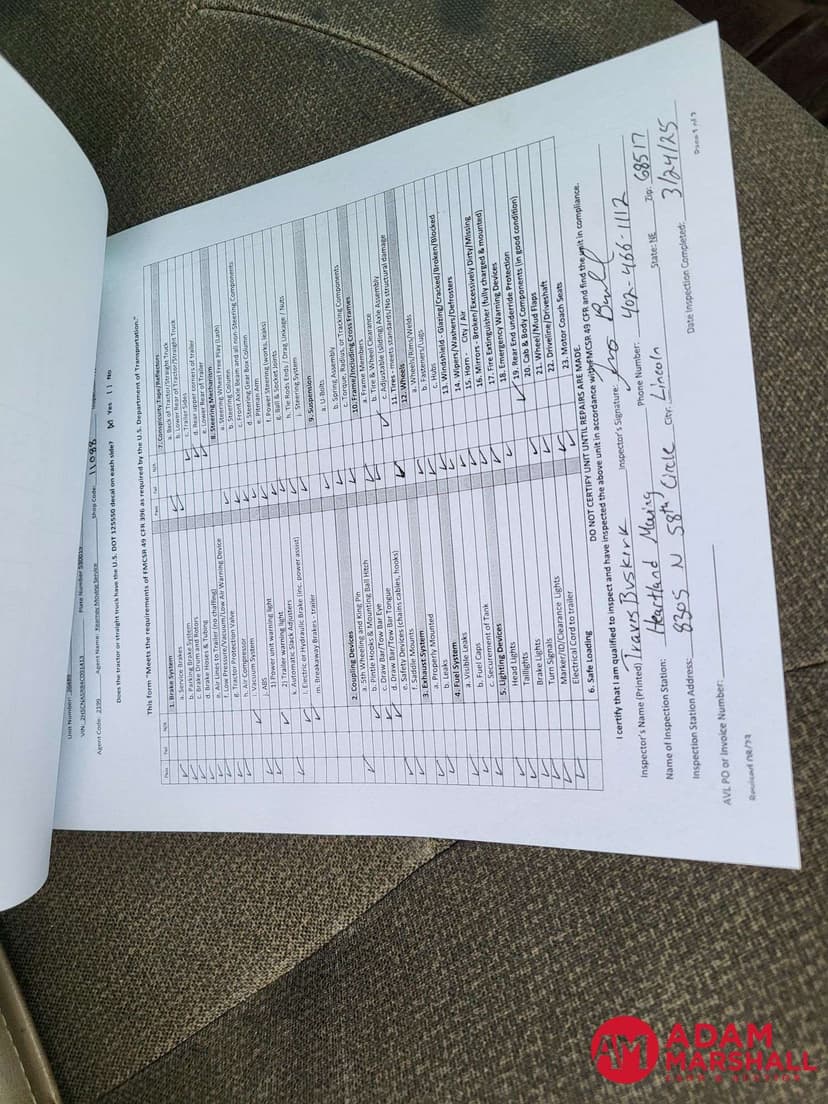 Unit Number:
VIN
Plate Number
Agent Code: 2199 Agent Name: Kearney Moving Service Shop Code: 11088
Does the tractor or straight truck have the U.S. DOT 125550 decal on each side? [X] Yes [ ] No
This form "Meets the requirements of FMCSR 49 CFR 396 as required by the U.S. Department of Transportation."
Pass Fail N/A
1. Brake System
a. Service Brakes
b. Parking Brake System
c. Brake Drums and Rotors
d. Brake Hoses & Tubing
e. Air Lines to Trailer (no chaffing)
f. Low Pressure/Vacuum/Low Air Warning Device
g. Tractor Protection Valve
h. Air Compressor
i. Vacuum System
j. ABS
1) Power unit warning light
2) Trailer warning light
k. Automatic Slack Adjusters
l. Electric or Hydraulic Brake (inc. power assist)
m. Breakaway Brakes - trailer
2. Coupling Devices
a. 5th Wheeling and King Pin
b. Pintle Hooks & Mounting Ball Hitch
c. Draw Bar/Tow Bar Eye
d. Draw Bar/Tow Bar Tongue
e. Safety Devices (chains cables, hooks)
f. Saddle Mounts
3. Exhaust System
a. Properly Mounted
b. Leaks
4. Fuel System
a. Visible Leaks
b. Fuel Caps
c. Securement of Tank
5. Lighting Devices
Head Lights
Taillights
Brake Lights
Turn Signals
Marker/ID/Clearance Lights
Electrical Cord to trailer
6. Safe Loading
Pass Fail N/A
7. Conspicuity Tape/Reflectors
a. Back of Tractor/Straight Truck
b. Lower Rear of Tractor/Straight Truck
c. Trailer Sides
d. Rear upper corners of trailer
e. Lower Rear of Trailer
8. Steering Mechanism
a. Steering Wheel Free Play (Lash)
b. Steering Column
c. Front Axle Beam and all non-Steering Components
d. Steering Gear Box Column
e. Pitman Arm
f. Power Steering (works, leaks)
g. Ball & Socket Joints
h. Tie Rods Ends / Drag Linkage / Nuts
i. Steering System
9. Suspension
a. U-Bolts
b. Spring Assembly
c. Torque, Radius, or Tracking Components
10. Frame/Including Cross Frames
a. Frame Members
b. Tire & Wheel Clearance
c. Adjustable (sliding) Axle Assembly
11. Tires - meets standards/No structural damage
12. Wheels
a. Wheels/Rims/Welds
b. Fasteners/Lugs
c. Hubs
13. Windshield - Glazing/Cracked/Broken/Blocked
14. Wipers/Washers/Defrosters
15. Horn - City / Air
16. Mirrors - Broken/Excessively Dirty/Missing
17. Fire Extinguisher (fully charged & mounted)
18. Emergency Warning Devices
19. Rear End underride Protection
20. Cab & Body Components (in good condition)
21. Wheel/Mud Flaps
22. Driveline/Driveshaft
23. Motor Coach Seats
DO NOT CERTIFY UNIT UNTIL REPAIRS ARE MADE.
I certify that I am qualified to inspect and have inspected the above unit in accordance with FMCSR 49 CFR and find the unit in compliance.
Inspector's Name (Printed) Travis Buskirk Inspector's Signature:
Name of Inspection Station: Heartland Moving Phone Number: 402-466-1112
Inspection Station Address: 8305 N 58th Circle City: Lincoln State: NE Zip: 68517
Date Inspection Completed: 3/24/25
AVL PO or Invoice Number:
AM ADAM
MARSHALL